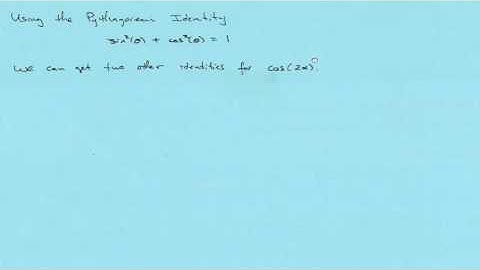 Using the Pythagorean Identity
sin²(θ) + cos²(θ) = 1
we can get two other identities for cos(2α):